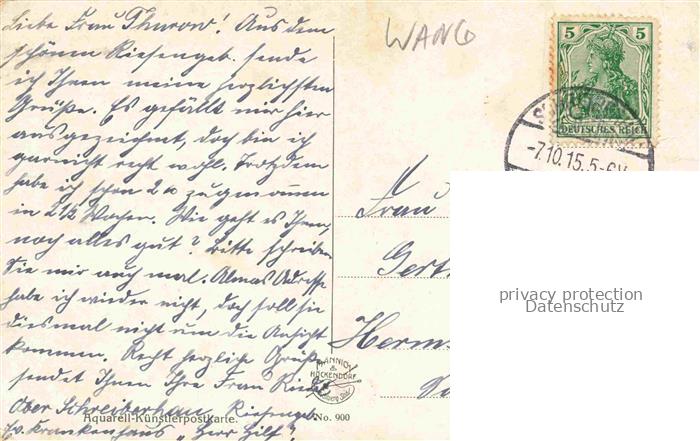 Liebe Frau Thurow! Aus dem
schönen Riesengeb. sende
ich Ihnen meine herzlichsten
Grüße. Es gefällt mir hier
ausgezeichnet, doch bin ich
garnicht recht wohl. Trotzdem
habe ich schon 2 zugenommen
in 2 1/2 Wochen. Wie geht es Ihnen,
noch alles gut? Bitte schreiben
Sie mir auch mal. Almas Adresse
habe ich wieder nicht, doch soll sie
diesmal nicht um die Ansicht
kommen. Recht herzliche Grüße
sendet Ihnen Ihre Frau
Ober Schreiberhau, Riesengeb.
Krankenhaus „Herr Hilf".
Aquarell-Künstlerpostkarte.
No. 900
MANNICH & HÖCKENDORF
WANG
5 5
DEUTSCHES REICH
-7.10.15.5-6V
Frau
Gert
Herm
privacy protection
Datenschutz